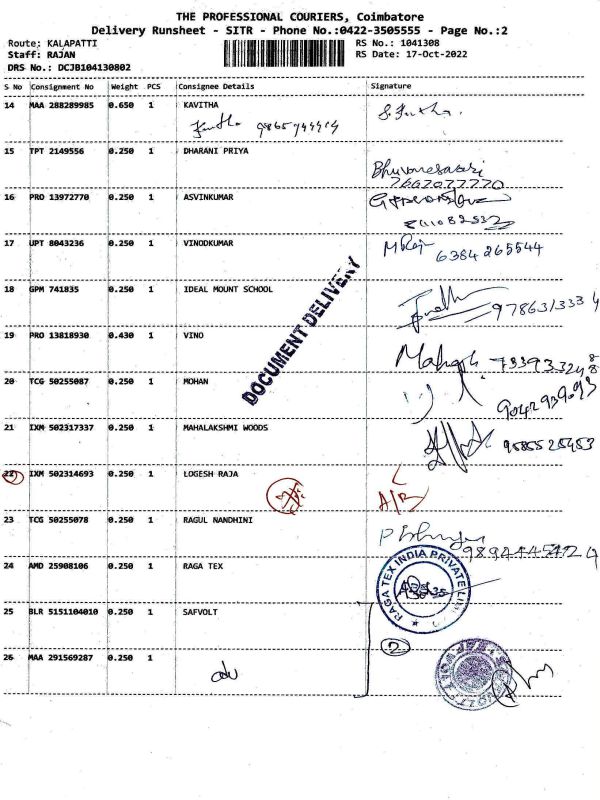 THE PROFESSIONAL COURIERS, Coimbatore
Delivery Runsheet - SITR - Phone No.:0422-3505555 - Page No.:2
Route: KALAPATTI RS No.: 1041308
Staff: RAJAN RS Date: 17-Oct-2022
DRS No.: DCJB104130802
S No Consignment No Weight PCS Consignee Details Signature
14 MAA 288289985 0.650 1 KAVITHA
15 TPT 2149556 0.250 1 DHARANI PRIYA
Bhuvaneswari
7667077770
16 PRO 13972770 0.250 1 ASVINKUMAR
17 UPT 8043236 0.250 1 VINODKUMAR
6384265544
18 GPM 741835 0.250 1 IDEAL MOUNT SCHOOL
DOCUMENT DELIVERY
9786313334
19 PRO 13818930 0.430 1 VINO
20 TCG 50255087 0.250 1 MOHAN
9042939093
21 IXM 502317337 0.250 1 MAHALAKSHMI WOODS
22 IXM 502314693 0.250 1 LOGESH RAJA
A/R
23 TCG 50255078 0.250 1 RAGUL NANDHINI
24 AMD 25908106 0.250 1 RAGA TEX
RAGA TEX INDIA PRIVATE LIMITED
25 BLR 5151104010 0.250 1 SAFVOLT
2
26 MAA 291569287 0.250 1